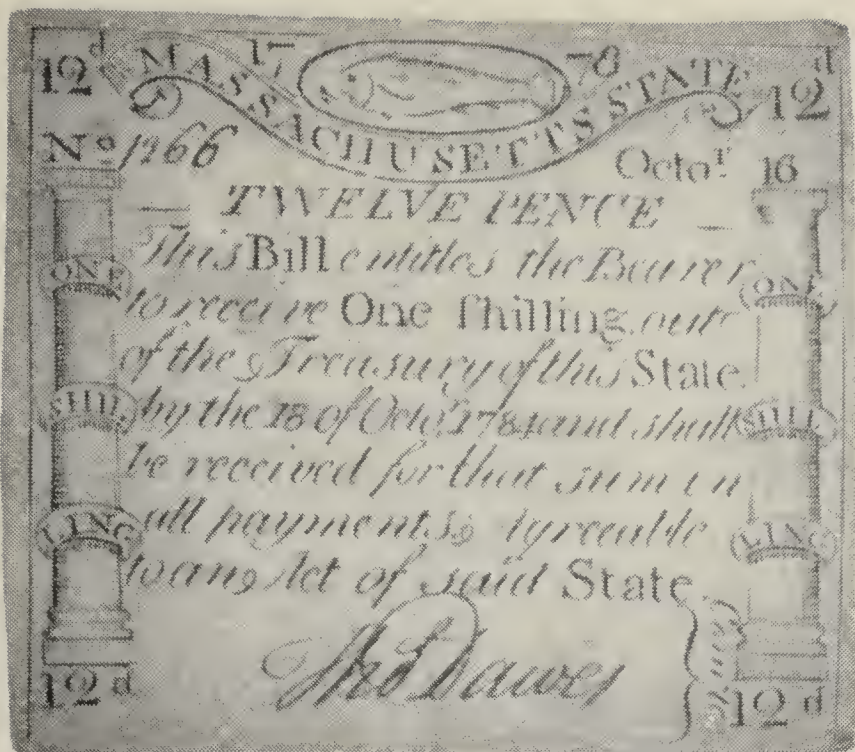 12d 17 78 12d
MASSACHUSETTS STATE
No 1266 Octor. 16
TWELVE PENCE
This Bill entitles the Bearer
to receive One Shilling out
of the Treasury of this State
by the 18 of Octor. 1784 and shall
be received for that sum in
all payments Agreeable
to an Act of said State
ONE SHIL LING
ONE SHIL LING
Tho Dawes
12d 12d